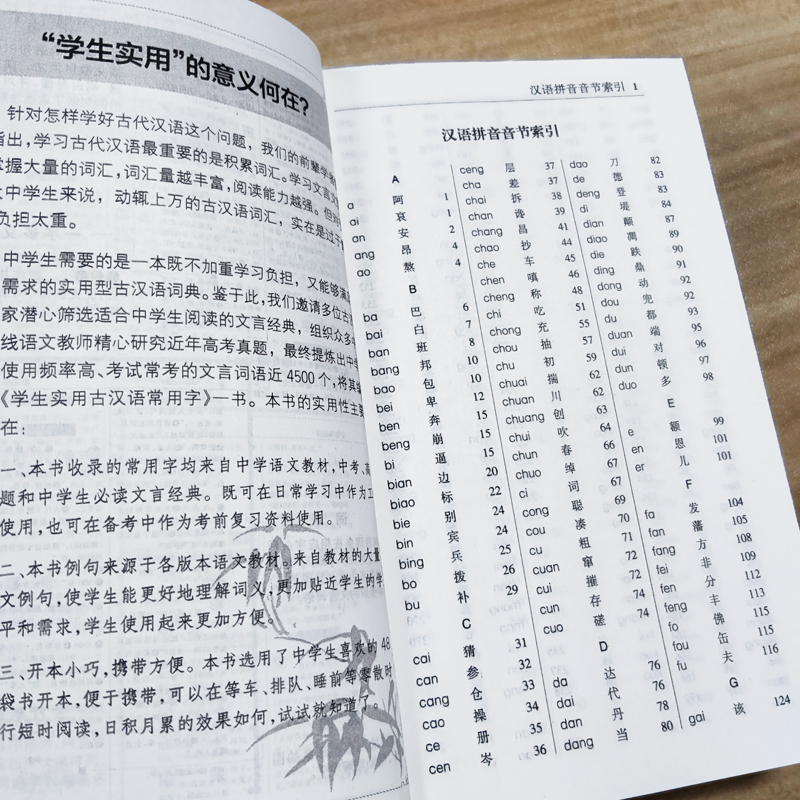 “学生实用”的意义何在？
针对怎样学好古代汉语这个问题，我们的前辈学
指出，学习古代汉语最重要的是积累词汇。学习文言文
掌握大量的词汇，词汇量越丰富，阅读能力越强。但对
大中学生来说，动辄上万的古汉语词汇，实在是过于
负担太重。
中学生需要的是一本既不加重学习负担，又能够满
需求的实用型古汉语词典。鉴于此，我们邀请多位古
家潜心筛选适合中学生阅读的文言经典，组织众多
线语文教师精心研究近年高考真题，最终提炼出中
使用频率高、考试常考的文言词语近 4500 个，将其
《学生实用古汉语常用字》一书。本书的实用性主要
在：
一、本书收录的常用字均来自中学语文教材，中考、高
题和中学生必读文言经典。既可在日常学习中作为工
使用，也可在备考中作为考前复习资料使用。
二、本书例句来源于各版本语文教材。来自教材的大量
文例句，使学生能更好地理解词义，更加贴近学生的学
平和需求，学生使用起来更加方便。
三、开本小巧，携带方便。本书选用了中学生喜欢的 48
袋书开本，便于携带，可以在等车、排队、睡前等零散时
行短时阅读，日积月累的效果如何，试试就知道了。
汉语拼音音节索引 1
汉语拼音音节索引
A
a 阿 1
ai 哀 1
an 安 2
ang 昂 4
ao 熬 4
B
ba 巴 6
bai 白 7
ban 班 8
bang 邦 10
bao 包 10
bei 卑 12
ben 奔 15
beng 崩 15
bi 逼 15
bian 边 20
biao 标 22
bie 别 24
bin 宾 24
bing 兵 25
bo 拨 26
bu 补 29
C
cai 猜 31
can 参 32
cang 仓 33
cao 操 34
ce 册 35
cen 岑 36
ceng 层 37
cha 差 37
chai 拆 38
chan 谗 39
chang 昌 41
chao 抄 44
che 车 45
chen 嗔 46
cheng 称 48
chi 吃 51
chong 充 55
chou 抽 57
chu 初 59
chuai 揣 62
chuan 川 62
chuang 创 63
chui 吹 64
chun 春 66
chuo 绰 67
ci 词 67
cong 聪 69
cou 凑 70
cu 粗 71
cuan 窜 72
cui 摧 72
cun 存 74
cuo 磋 74
D
da 达 76
dai 代 76
dan 丹 78
dang 当 80
dao 刀 82
de 德 83
deng 登 83
di 堤 84
dian 颠 87
diao 凋 89
die 跌 90
ding 鼎 91
dong 动 92
dou 兜 92
du 都 93
duan 端 95
dui 对 96
dun 顿 97
duo 多 98
E
e 额 99
en 恩 101
er 儿 101
F
fa 发 104
fan 藩 105
fang 方 108
fei 非 109
fen 分 112
feng 丰 113
fo 佛 115
fou 缶 115
fu 夫 116
G
gai 该 124